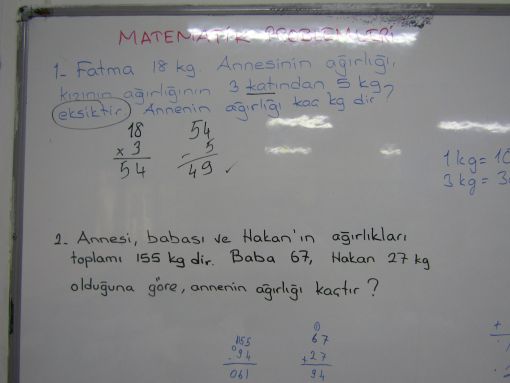 MATEMATİK PROBLEMLERİ
1- Fatma 18 kg. Annesinin ağırlığı,
kızının ağırlığının 3 katından 5 kg
eksiktir. Annenin ağırlığı kaç kg dir?
18 54
x 3 - 5
54 49 ✓
1 kg = 10
3 kg = 3
2- Annesi, babası ve Hakan'ın ağırlıkları
toplamı 155 kg dir. Baba 67, Hakan 27 kg
olduğuna göre, annenin ağırlığı kaçtır?
155 67
- 94 +27
061 94